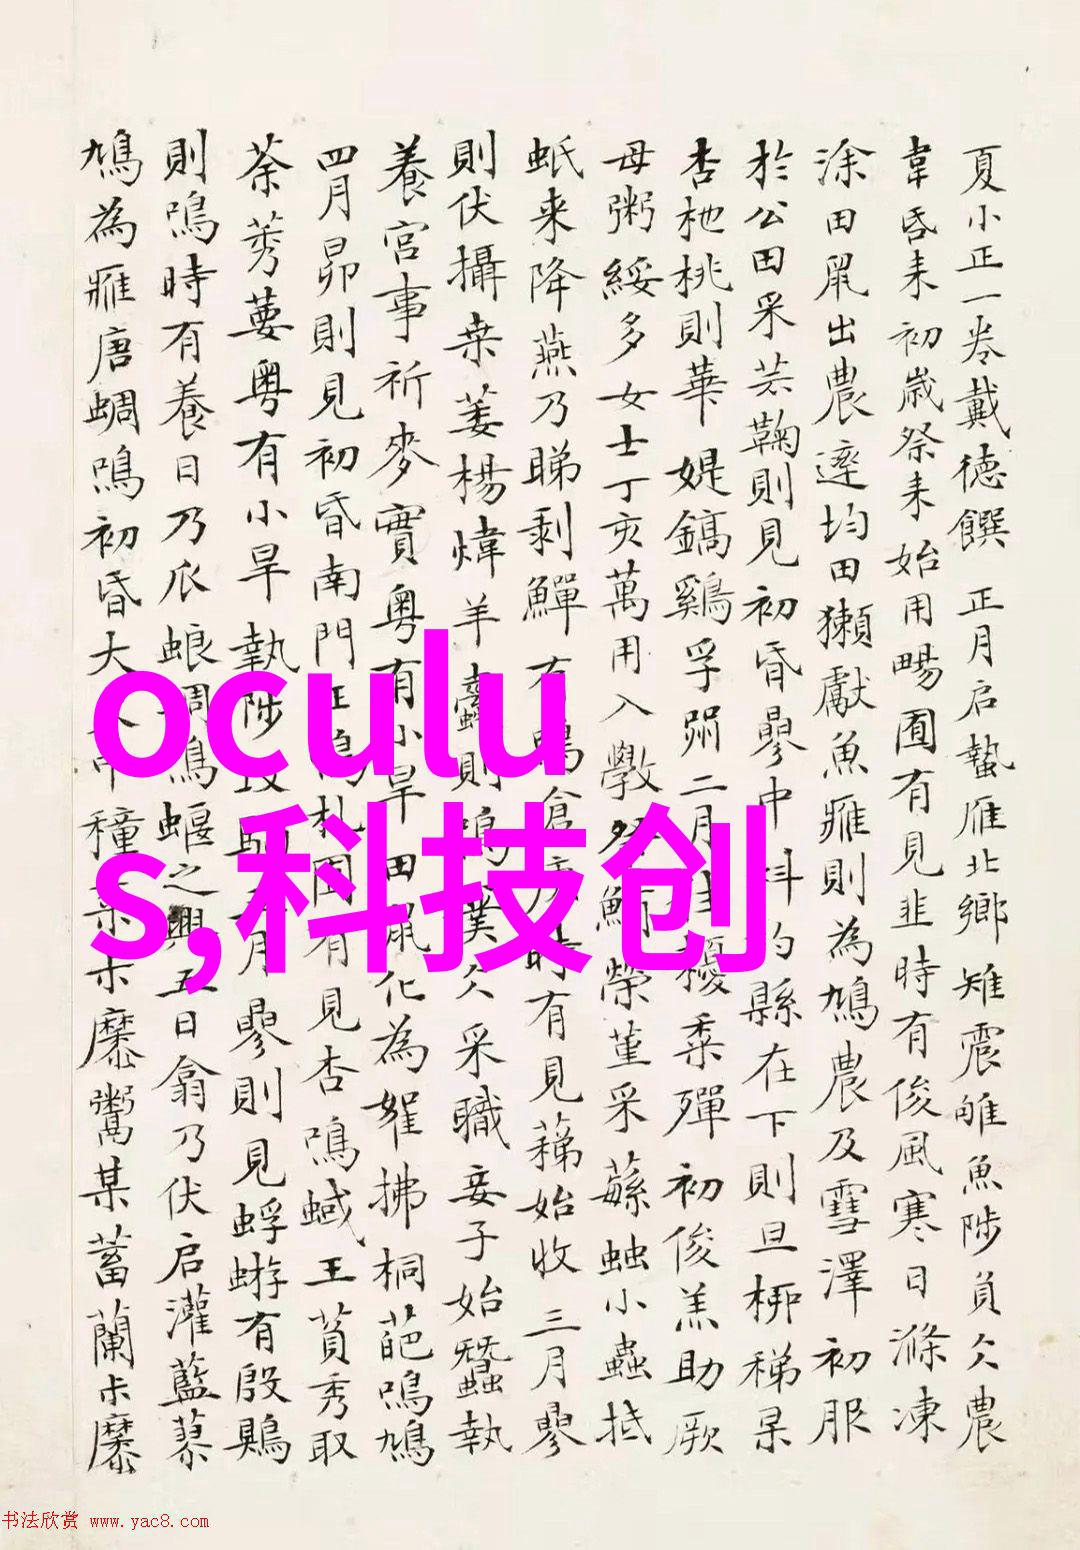 夏小正一卷戴德饌 正月启蟄雁北鄉雉震雊魚陟負仌農
韋昏耒初歲祭耒始用畼囿有見韭時有俊風寒日滌凍
涂田鼠出農達均田獺獻魚雁則為鳩農及雪澤初服
於公田采芸鞠則見初昏參中斗灼縣在下則旦桺稊
杏杝桃則華媞鎬雞孚粥二月往耰黍殫初俊羔助厥
母粥綏多女士丁亥萬用入學祭鮪榮菫采蘇虫小蟲抵
蚳來降燕乃睇剥鱓有鳴倉庚時有見稊始收三月參
則伏攝桑萎楊煒羊 則鳴 仌采職妾子始蠶執
養宮事祈麥實粤有小旱田鼠化為 拂桐葩鳴鳩
四月昴則見初昏南門正鳴札囿有見杏鳴蜮王萯秀取
荼莠葽粤有小旱執陟攻駒五月參則見蜉蝣有殷鴂
則鳴時有養日乃瓜蜋蜩鳴蝘之興五日翕乃伏启灌藍蓼
鳩為鷹唐蜩鳴初昏大火中種黍尗麋鬻某蓄蘭尗麋
oculu
s,科技创
书法欣赏 www.yac8.com